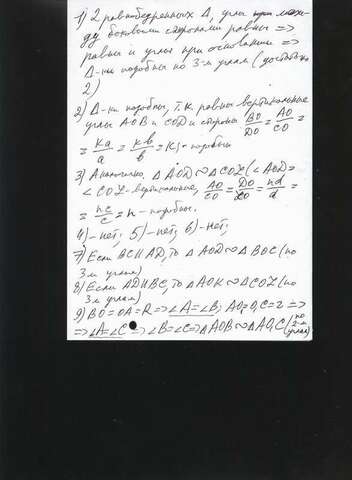 1) 2 равнобедренных Δ, углы при меж-
ду боковыми сторонами равны =>
равны и углы при основании =>
Δ-ки подобны по 3-м углам (достаточно
2)
2) Δ-ки подобны, т.к. равны вертикальные
углы AOB и COD и стороны BO/DO = AO/CO =
= ka/a = kb/b = k; - подобны
3) Аналогично, ΔAOD ∾ ΔCOL (∠AOD =
∠COL - вертикальные, AO/CO = DO/LO = nd/d =
= nc/c = n - подобные.
4) - нет; 5) - нет; 6) - нет;
7) Если BC∥AD, то ΔAOD ∾ ΔBOC (по
3м углам)
8) Если AD∥BC, то ΔAOK ∾ ΔCOL (по
3м углам)
9) BO = OA = R => ∠A = ∠B; AO₁ = O₁C = r =>
=> ∠A = ∠C => ∠B = ∠C => ΔAOB ∾ ΔAO₁C (по 2-м углам)